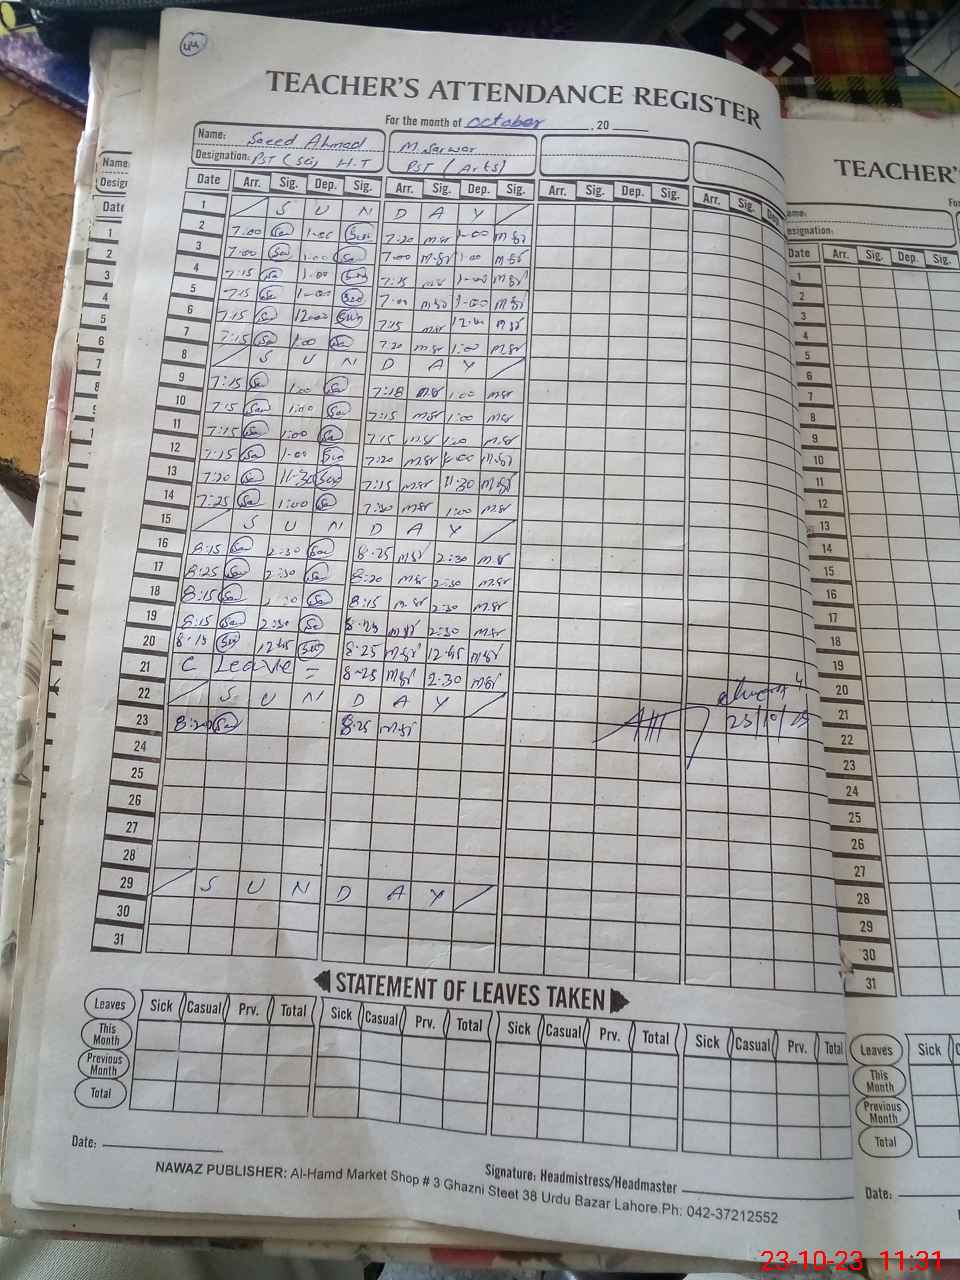 44
TEACHER'S ATTENDANCE REGISTER
For the month of October , 20
Name: Saeed Ahmad M. Sarwar
Designation: PST (Sc) H.T PST (Arts)
Date Arr. Sig. Dep. Sig. Arr. Sig. Dep. Sig. Arr. Sig. Dep. Sig. Arr. Sig. Dep.
1 S U N D A Y
2 7.00 1-00 7:20 msr 1-00 msr
3 7:00 1:00 7:00 msr 1:00 msr
4 7:15 1:00 7:15 msr 1-00 msr
5 7:15 1-00 7:00 msr 1-00 msr
6 7:15 12:00 7:15 msr 12:00 msr
7 7:15 1:00 7:20 msr 1:00 msr
8 S U N D A Y
9 7:15 1:00 7:18 msr 1:00 msr
10 7:15 1:00 7:15 msr 1:00 msr
11 7:15 1:00 7:15 msr msr
12 7:15 1:00 7:20 msr 1:00 msr
13 7:20 11-30 7:15 msr 11:30 msr
14 7:25 1:00 msr 1:00 msr
15 S U N D A Y
16 8:15 2:30 8:25 msr 2:30 msr
17 8:25 2:30 8:20 msr 2:30 msr
18 8:15 8:15 msr 2:30 msr
19 8:15 2:30 8:25 msr 2:30 msr
20 8:15 12:45 8.25 msr 12:45 msr
21 C Leave = 8-25 msr 2.30 msr
22 S U N D A Y
23 8:20 8.25 msr
23/10/23
24
25
26
27
28
29 S U N D A Y
30
31
STATEMENT OF LEAVES TAKEN
Leaves Sick Casual Prv. Total Sick Casual Prv. Total Sick Casual Prv. Total Sick Casual Prv. Total
This Month
Previous Month
Total
Date:
Signature: Headmistress/Headmaster
NAWAZ PUBLISHER: Al-Hamd Market Shop # 3 Ghazni Steet 38 Urdu Bazar Lahore.Ph: 042-37212552
Name
Date
1
2
3
4
5
6
7
8
TEACHER'
Date Arr. Sig. Dep. Sig.
1
2
3
4
5
6
7
8
9
10
11
12
13
14
15
16
17
18
19
20
21
22
23
24
25
26
27
28
29
30
31
Leaves Sick
This Month
Previous Month
Total
Date:
23-10-23 11:31